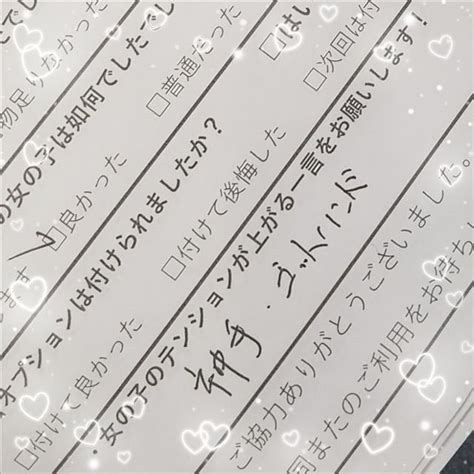 物足りなかった
□普通だった
□はい
□次回は付
の女の子は如何でしたでし
□良かった
オプションは付けられましたか？
□付けて良かった
□付けて後悔した
・女の子のテンションが上がる一言をお願いします！
神手・ゴッドハンド
ご協力ありがとうございました。
またのご利用をお待ち